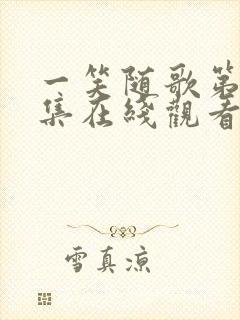 一笑随歌第
集在綫觀看
雪真凉